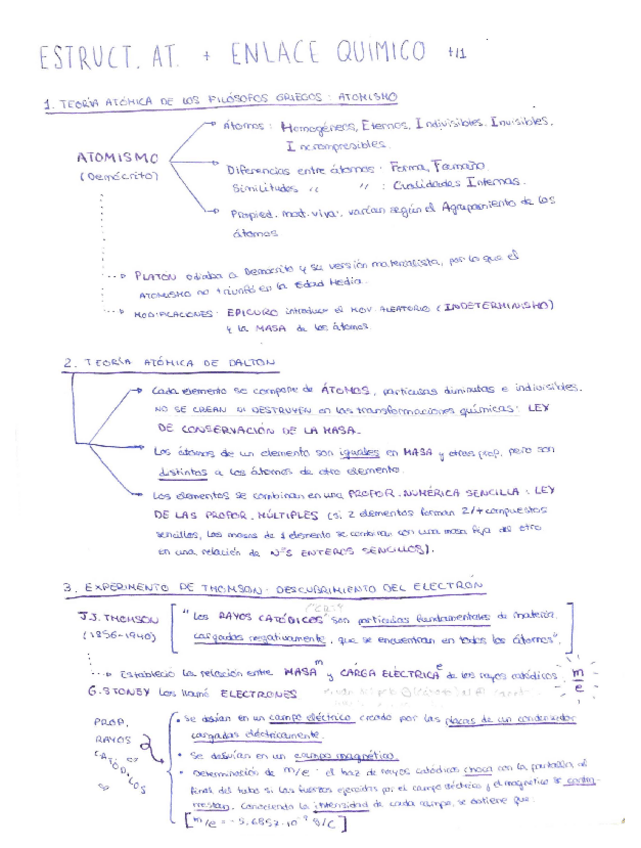 ESTRUCT. AT. + ENLACE QUÍMICO
1. TEORÍA ATÓMICA DE LOS FILÓSOFOS GRIEGOS: ATOMISMO
Átomos: Homogéneos, Eternos, Indivisibles. Invisibles.
Incompresibles.
ATOMISMO
(Demócrito)
Diferencias entre átomos: Forma, Tamaño
Similitudes " " : Cualidades Internas.
Propied. mat. viva: varían según el Agrupamiento de los
átomos
PLATÓN odiaba a Demócrito y su versión materialista, por lo que el
ATOMISMO no triunfó en la Edad Media.
MODIFICACIONES: EPICURO introduce el MOV. ALEATORIO (INDETERMINISMO)
y la MASA de los átomos.
2. TEORÍA ATÓMICA DE DALTON
Cada elemento se compone de ÁTOMOS, partículas diminutas e indivisibles.
NO SE CREAN NI DESTRUYEN en las transformaciones químicas: LEY
DE CONSERVACIÓN DE LA MASA.
Los átomos de un elemento son iguales en MASA y otras prop. pero son
distintos a los átomos de otro elemento.
Los elementos se combinan en una PROPOR. NUMÉRICA SENCILLA: LEY
DE LAS PROPOR. MÚLTIPLES (si 2 elementos forman 2/+ compuestos
sencillos, las masas de 1 elemento se combinan con una masa fija del otro
en una relación de NºS ENTEROS SENCILLOS).
3. EXPERIMENTO DE THOMSON: DESCUBRIMIENTO DEL ELECTRÓN
J.J. THOMSON
(1856-1940)
"Los RAYOS CATÓDICOS son partículas fundamentales de materia
cargadas negativamente, que se encuentran en todos los átomos".
Estableció la relación entre MASA m y CARGA ELÉCTRICA e de los rayos catódicos. m/e
G. STONEY los llamó ELECTRONES
PROP.
RAYOS
CATÓDICOS
• Se desvían en un campo eléctrico creado por las placas de un condensador
cargadas eléctricamente.
• Se desvían en un campo magnético.
• Determinación de m/e: el haz de rayos catódicos choca con la pantalla al
final del tubo si las fuerzas ejercidas por el campo eléctrico y el magnético se contra-
rrestan. Conociendo la intensidad de cada campo, se obtiene que:
[m/e = -5.6857·10⁻⁹ g/C]